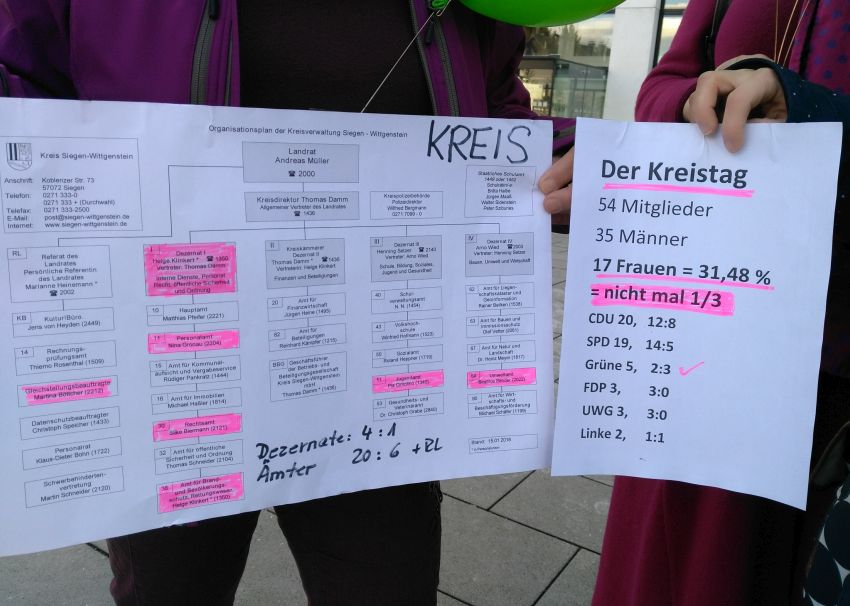 Organisationsplan der Kreisverwaltung Siegen - Wittgenstein
KREIS
Kreis Siegen-Wittgenstein
Anschrift: Koblenzer Str. 73
57072 Siegen
Telefon: 0271 333-0
0271 333 + (Durchwahl)
Telefax: 0271 333-2500
E-Mail: post@siegen-wittgenstein.de
Internet: www.siegen-wittgenstein.de
Landrat
Andreas Müller
☎ 2000
Kreisdirektor Thomas Damm
Allgemeiner Vertreter des Landrates
☎ 1436
Kreispolizeibehörde
Polizeidirektor
Wilfried Bergmann
0271 7099 - 0
Staatliches Schulamt
Schulrätin/-e
Jürgen
Walter Sidenstein
Peter
RL
Referat des
Landrates
Persönliche Referentin
des Landrates
Marianne Heinemann *
☎ 2002
KB Kultur!Büro.
Jens von Heyden (2449)
14 Rechnungs-
prüfungsamt
Thiemo Rosenthal (1509)
Gleichstellungsbeauftragte
Martina Böttcher (2212)
Datenschutzbeauftragter
Christoph Speicher (1433)
Personalrat
Klaus-Dieter Bohn (1722)
Schwerbehinderten-
vertretung
Martin Schneider (2120)
Dezernat I
Helge Klinkert * ☎ 1360
Vertreter: Thomas Damm
Interne Dienste, Personal,
Recht, öffentliche Sicherheit
und Ordnung
10 Hauptamt
Matthias Pfeifer (2221)
11 Personalamt
Nina Gronau (2304)
15 Amt für Kommunal-
aufsicht und Vergabeservice
Rüdiger Pankratz (1444)
16 Amt für Immobilien
Michael Haßler (1814)
30 Rechtsamt
Silke Biermann (2121)
32 Amt für öffentliche
Sicherheit und Ordnung
Thomas Schneider (2104)
38 Amt für Brand-
und Bevölkerungs-
schutz, Rettungswesen
Helge Klinkert * (1360)
II Kreiskämmerer
Dezernat II
Thomas Damm * ☎ 1436
Vertreterin: Helge Klinkert
Finanzen und Beteiligungen
20 Amt für
Finanzwirtschaft
Jürgen Heine (1495)
82 Amt für
Beteiligungen
Reinhard Kämpfer (1215)
BBG Geschäftsführer
der Betriebs- und
Beteiligungsgesellschaft
Kreis Siegen-Wittgenstein
mbH
Thomas Damm * (1436)
III
Dezernat III
Henning Setzer ☎ 2140
Vertreter: Arno Wied
Schule, Bildung, Soziales,
Jugend und Gesundheit
40 Schul-
verwaltungsamt
N. N. (1454)
43 Volkshoch-
schule
Winfried Hofmann (1523)
50 Sozialamt
Roland Heppner (1710)
51 Jugendamt
53 Gesundheits- und
Veterinäramt
Dr. Christoph Grabe (2840)
IV
Dezernat IV
Arno Wied ☎ 2003
Vertreter: Henning Setzer
Bauen, Umwelt und Wirtschaft
62 Amt für Liegen-
schaftskataster und
Geoinformation
Rainer Belken (1538)
63 Amt für Bauen und
Immissionsschutz
67 Amt für Natur und
Landschaft
Umweltamt
Amt für Wirt-
schafts- und
Beschäftigungsförderung
Stand: 15.01.2016
Dezernate: 4:1
Ämter 20:6 +RL
Der Kreistag
54 Mitglieder
35 Männer
17 Frauen = 31,48 %
= nicht mal 1/3
CDU 20, 12:8
SPD 19, 14:5
Grüne 5, 2:3 ✓
FDP 3, 3:0
UWG 3, 3:0
Linke 2, 1:1